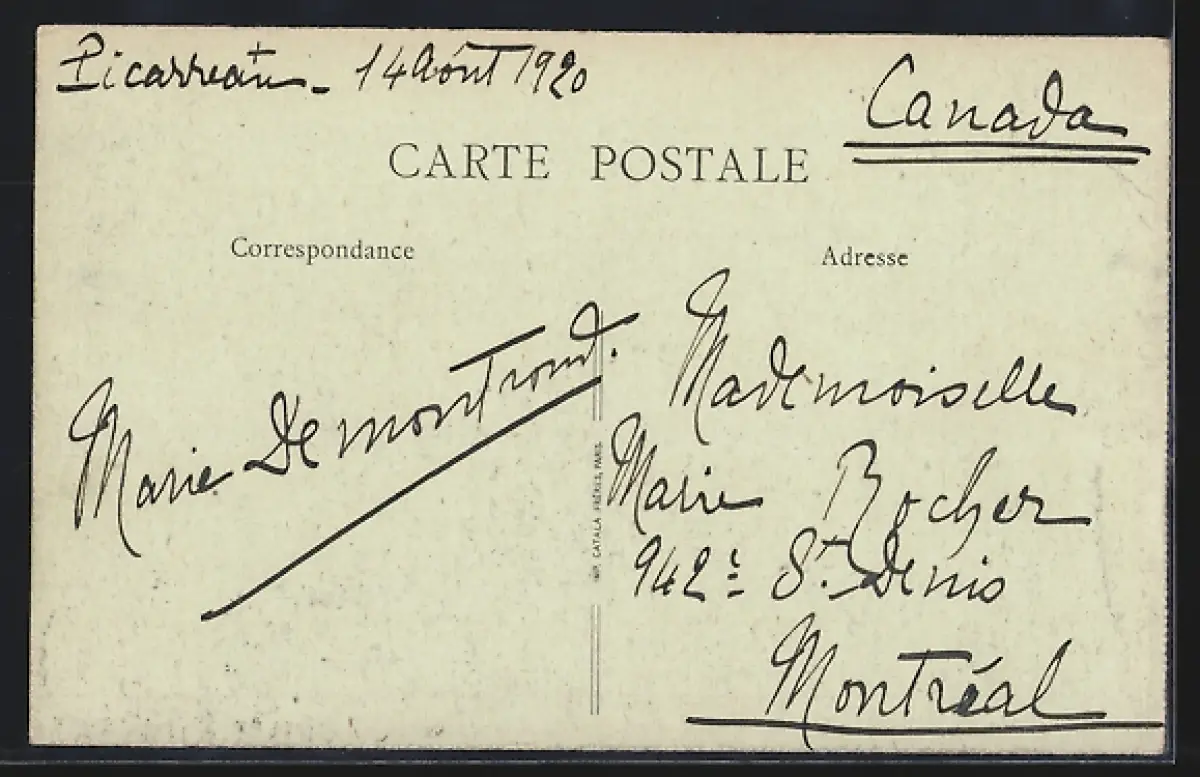 Picarreau - 14 Août 1920
Canada
CARTE POSTALE
Correspondance
Adresse
Marie Demontrond.
Mademoiselle
Marie Rocher
942 : St. Denis
Montréal
IMP. CATALA FRÈRES, PARIS